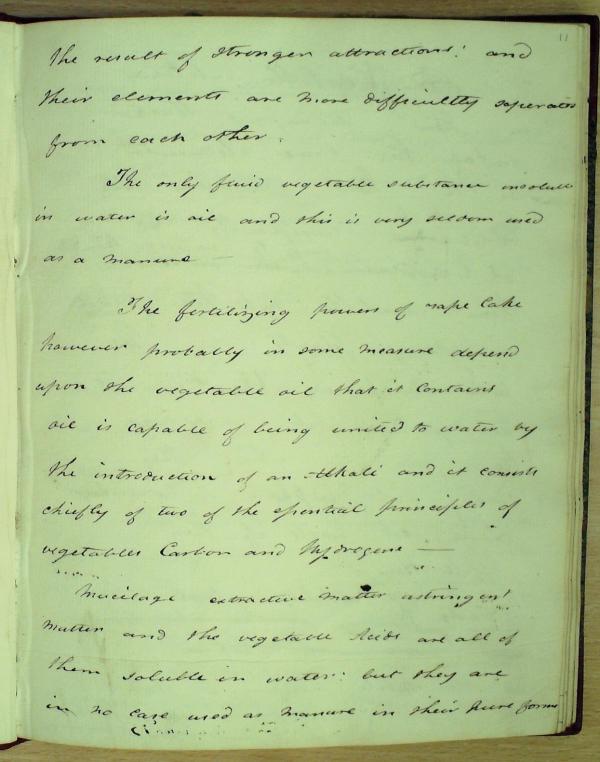 11
the result of stronger attractions: and
their elements are more difficultly seperated
from each other.
The only fluid vegetable substance insoluble
in water is oil and this is very seldom used
as a manure
The fertilizing powers of rape Cake
however probably in some measure depend
upon the vegetable oil that it Contains
oil is capable of being united to water by
the introduction of an Alkali and it consists
chiefly of two of the essential principles of
vegetables Carbon and Hydrogene —
Mucilage extractive matter astringent
matter and the vegetable Acids are all of
them soluble in water: but they are
in no case used as manure in their pure forms